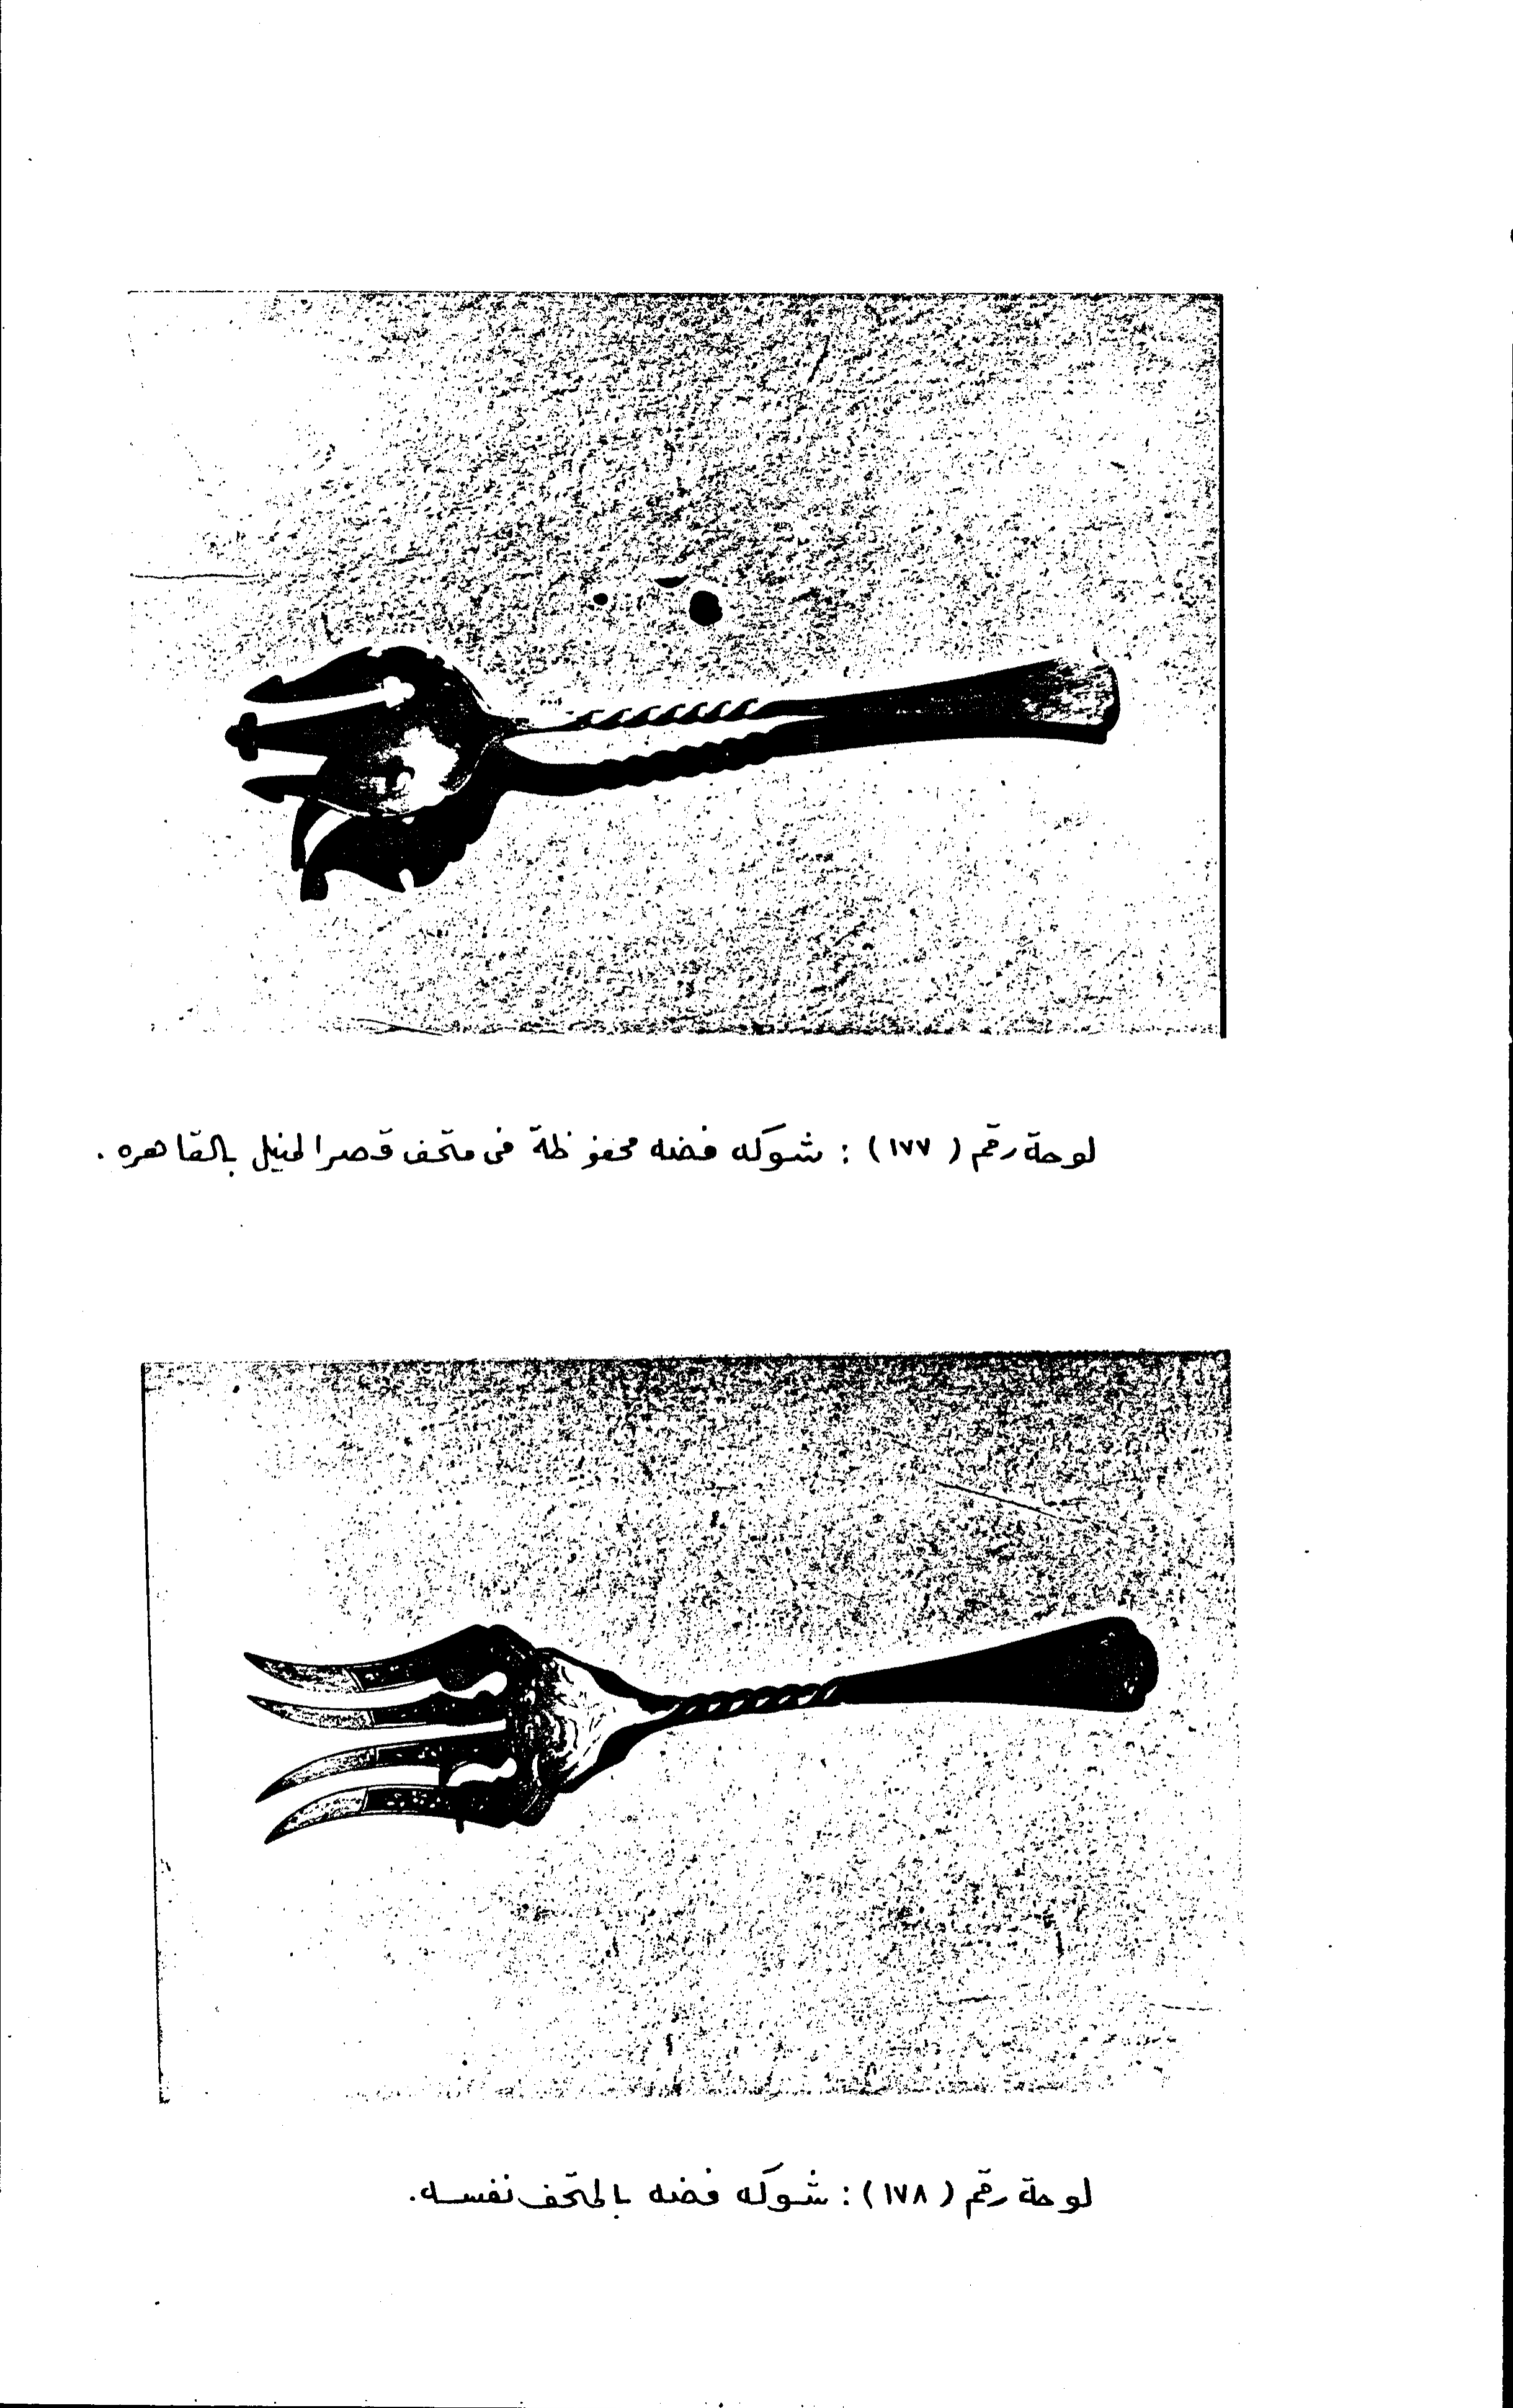 لوحة رقم ( ١٧٧ ) : شوكه فضه محفوظة فى متحف قصر المنيل بالقاهره .
لوحة رقم ( ١٧٨ ) : شوكه فضه بالمتحف نفسه .